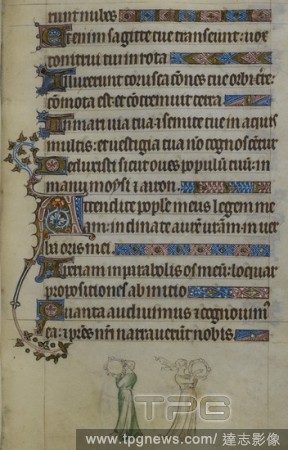 runt nubes
Etenim sagitte tue transeunt: vox
tonitrui tui in rota
Illuxerunt coruscacōnes tue orbi tr̄e:
cōmota est et cōtremuit terra
In mari via tua et semite tue in aquis
multis: et vestigia tua nō cognoscent̄
Deduxisti sicut oves populū tuū: in
manu moysi et aaron.
Attendite pople meus legem me
am: inclinate aurē vr̄am in ver
ba oris mei
Aperiam in parabolis os meū: loquar
propositiones ab initio
Quanta audivimus et cognovim̄
ea: et pr̄es nr̄i narraverūt nobis.
TPG
www.tpgnews.com/ 達志影像